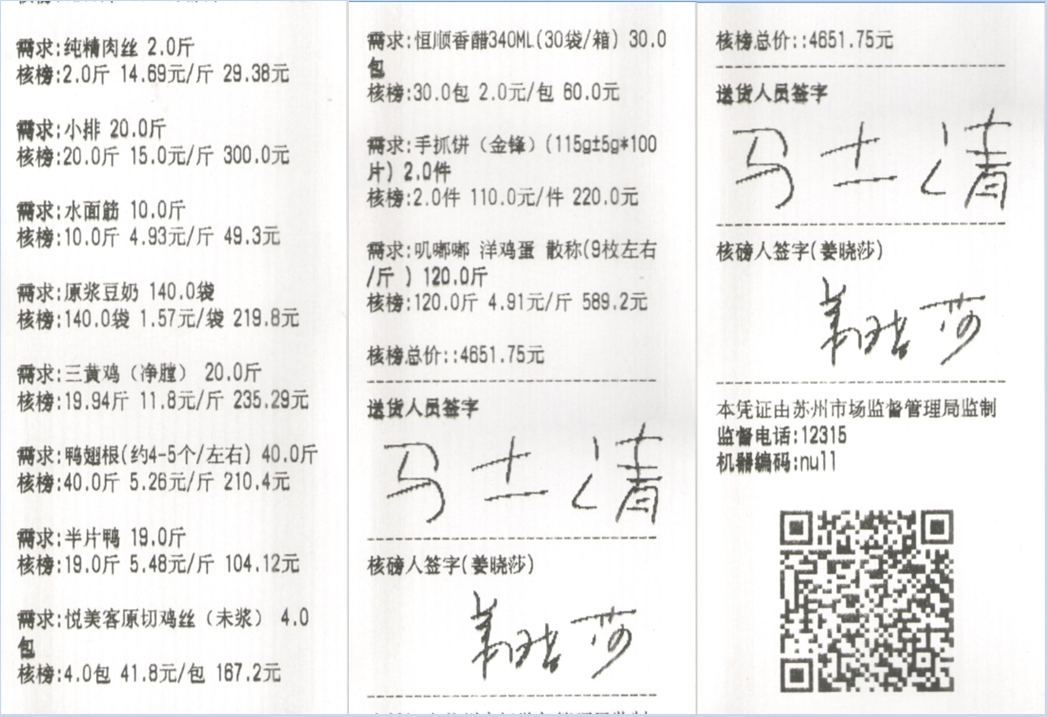 需求:纯精肉丝 2.0斤
核榜:2.0斤 14.69元/斤 29.38元
需求:小排 20.0斤
核榜:20.0斤 15.0元/斤 300.0元
需求:水面筋 10.0斤
核榜:10.0斤 4.93元/斤 49.3元
需求:原浆豆奶 140.0袋
核榜:140.0袋 1.57元/袋 219.8元
需求:三黄鸡（净膛） 20.0斤
核榜:19.94斤 11.8元/斤 235.29元
需求:鸭翅根(约4-5个/左右) 40.0斤
核榜:40.0斤 5.26元/斤 210.4元
需求:半片鸭 19.0斤
核榜:19.0斤 5.48元/斤 104.12元
需求:悦美客原切鸡丝（未浆） 4.0
包
核榜:4.0包 41.8元/包 167.2元
需求:恒顺香醋340ML(30袋/箱) 30.0
包
核榜:30.0包 2.0元/包 60.0元
需求:手抓饼（金锋）(115g±5g*100
片) 2.0件
核榜:2.0件 110.0元/件 220.0元
需求:叽嘟嘟 洋鸡蛋 散称(9枚左右
/斤 ) 120.0斤
核榜:120.0斤 4.91元/斤 589.2元
核榜总价::4651.75元
送货人员签字
马士清
核磅人签字(姜晓莎)
姜晓莎
核榜总价::4651.75元
送货人员签字
马士清
核磅人签字(姜晓莎)
姜晓莎
本凭证由苏州市场监督管理局监制
监督电话:12315
机器编码:null